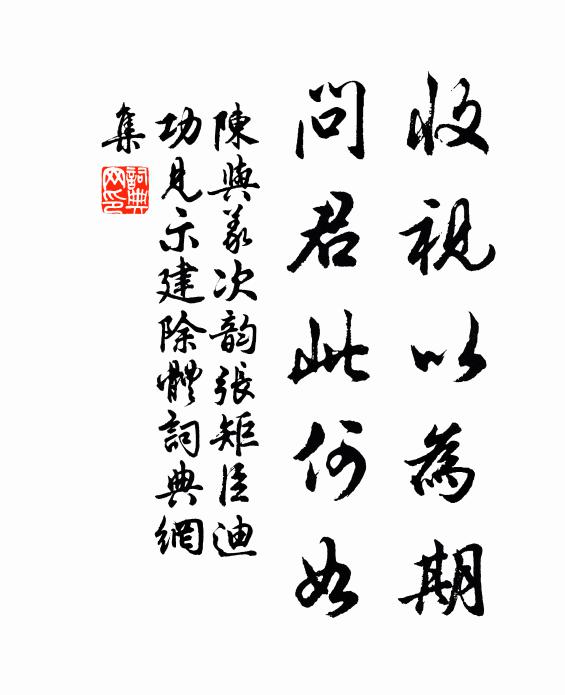 收視以為期
問君此何如
陳與義次韵張矩臣迪
功見示建除體詞典網
集
詞典網印